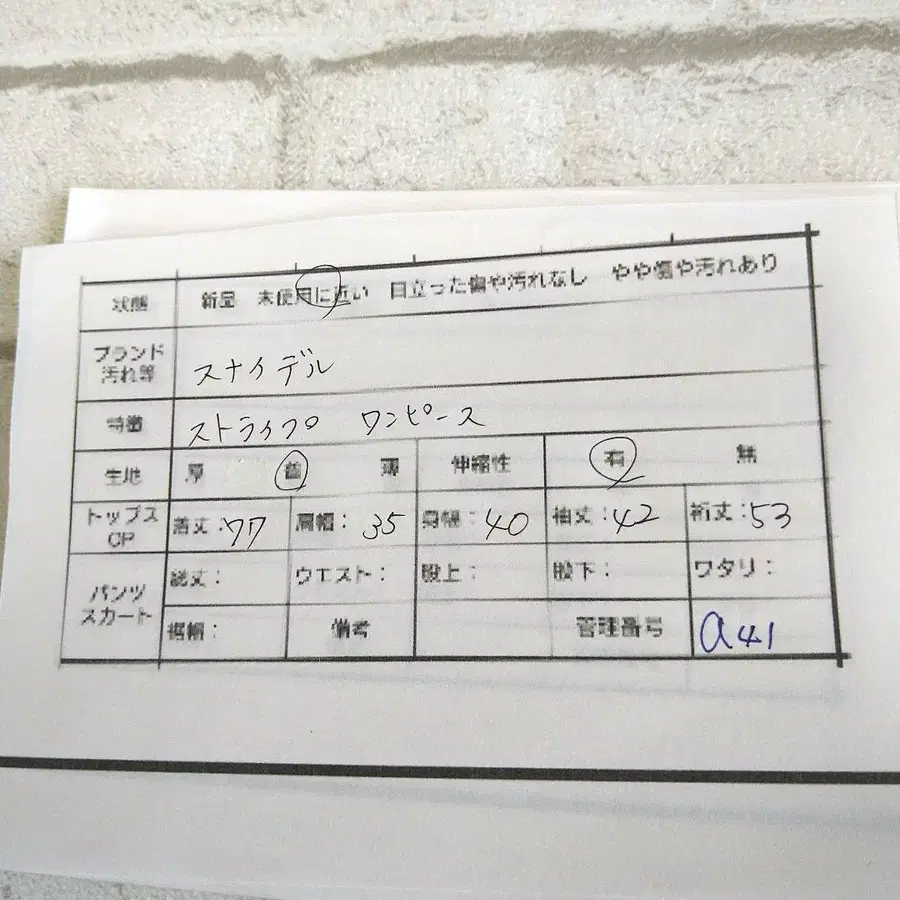 状態 新品 未使用に近い 目立った傷や汚れなし やや傷や汚れあり
ブランド
汚れ等 スナイデル
特徴 ストライプ ワンピース
生地 厚 普 薄 伸縮性 有 無
トップス
OP 着丈:77 肩幅: 35 身幅: 40 袖丈:42 裄丈:53
パンツ
スカート 総丈: ウエスト: 股上: 股下: ワタリ:
裾幅: 備考 管理番号 a41